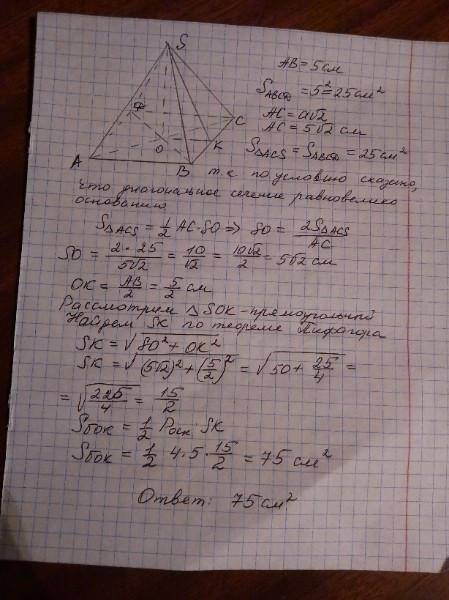 S
A
B
C
K
O
AB = 5 см
S ABCD = 5² = 25 см²
AC = a√2
AC = 5√2 см
S△ACS = S ABCD = 25 см²
т.к по условию сказано,
что диагональное сечение равновелико
основанию
S△ACS = 1/2 AC·SO ⇒ SO = 2S△ACS/AC
SO = 2·25/5√2 = 10/√2 = 10√2/2 = 5√2 см
OK = AB/2 = 5/2 см
Рассмотрим △SOK - прямоугольной
Найдем SK по теореме Пифагора
SK = √(SO² + OK²)
SK = √((5√2)² + (5/2)²) = √(50 + 25/4) =
= √(225/4) = 15/2
Sбок = 1/2 Pосн · SK
Sбок = 1/2 4·5·15/2 = 75 см²
Ответ: 75 см²